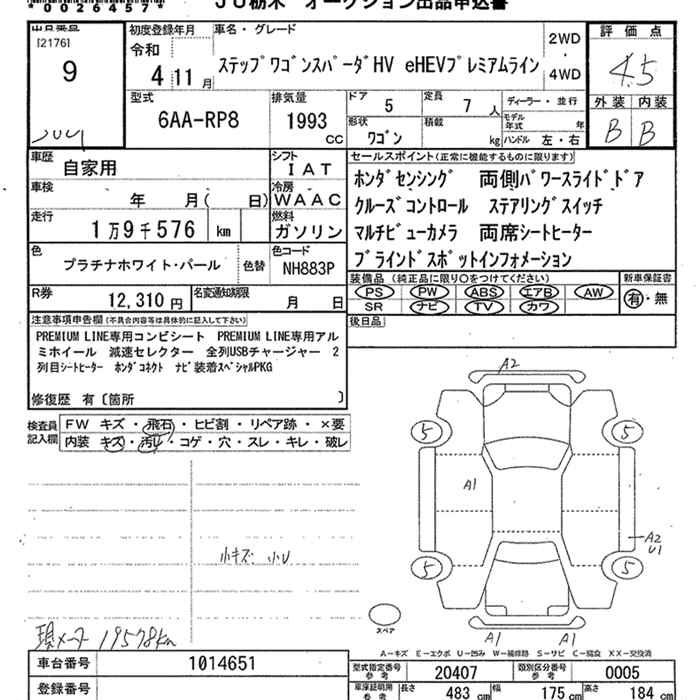 *0026457* JU栃木 オークション出品申込書
出品番号
[2176]
9
初度登録年月
令和
4年11月
車名・グレード
ステップワゴンスパーダHV eHEVプレミアムライン
2WD
・
4WD
評価点
4.5
外装 内装
B B
型式
6AA-RP8
排気量
1993
cc
ドア
5
定員
7 人
ディーラー・並行
形状
ワゴン
積載
kg
モデル年式 年
ハンドル 左・右
車歴
自家用
シフト
IAT
車検
年 月( 日)
冷房
WAAC
走行
1万9千576 km
燃料
ガソリン
色
プラチナホワイト・パール
色替
色コード
NH883P
R券
12,310 円
名変通知期限
月 日
セールスポイント(正常に機能するものに限ります)
ホンダセンシング 両側パワースライドドア
クルーズコントロール ステアリングスイッチ
マルチビューカメラ 両席シートヒーター
ブラインドスポットインフォメーション
装備品 (純正品に限り○をつけてください)
PS PW ABS エアB AW
SR ナビ TV カワ
新車保証書
有・無
後日品
注意事項申告欄(不具合内容等は具体的に記入して下さい)
PREMIUM LINE専用コンビシート PREMIUM LINE専用アル
ミホイール 減速セレクター 全列USBチャージャー 2
列目シートヒーター ホンダコネクト ナビ装着スペシャルPKG
修復歴 有〔箇所 〕
検査員記入欄
FW キズ・飛石・ヒビ割・リペア跡・×要
内装 キズ・汚レ・コゲ・穴・スレ・キレ・破レ
小キズ 小U
現メーター 19578km
A2
5 5
A1
A2
U1
5 5
A1 A1
スペア
A－キズ E－エクボ U－凹み W－補修跡 S－サビ C－腐食 XX－交換済
車台番号
1014651
登録番号
型式指定番号
参考
20407
類別区分番号
参考
0005
車庫証明用
参考
長さ 483 cm
幅 175 cm
高さ 184 cm